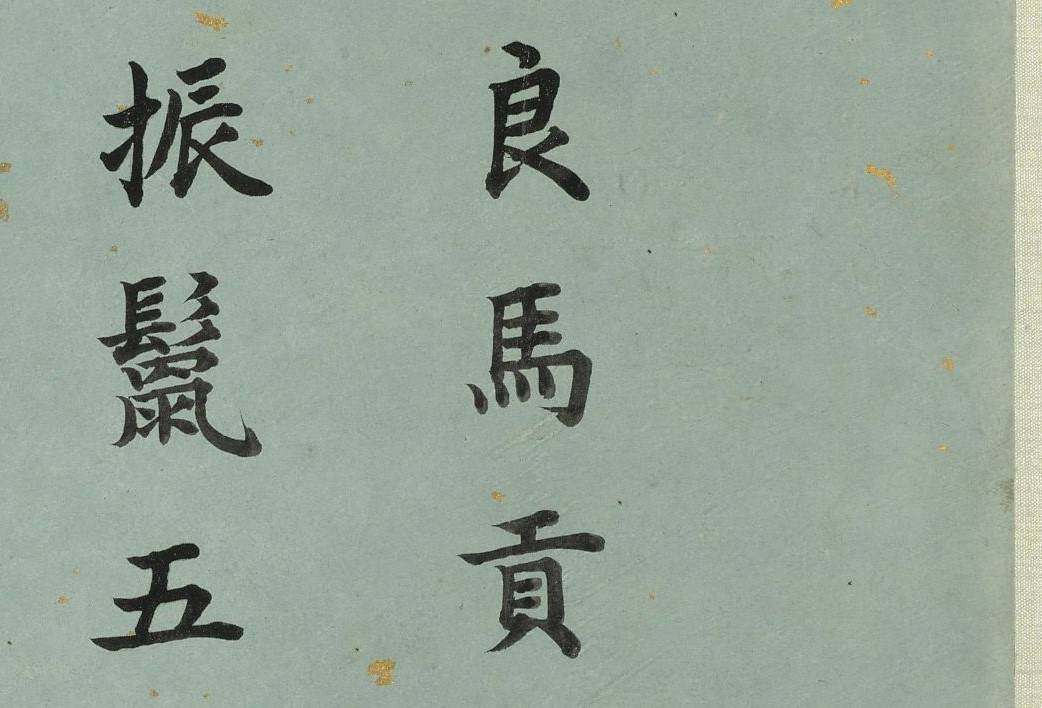 良馬貢
振鬛五